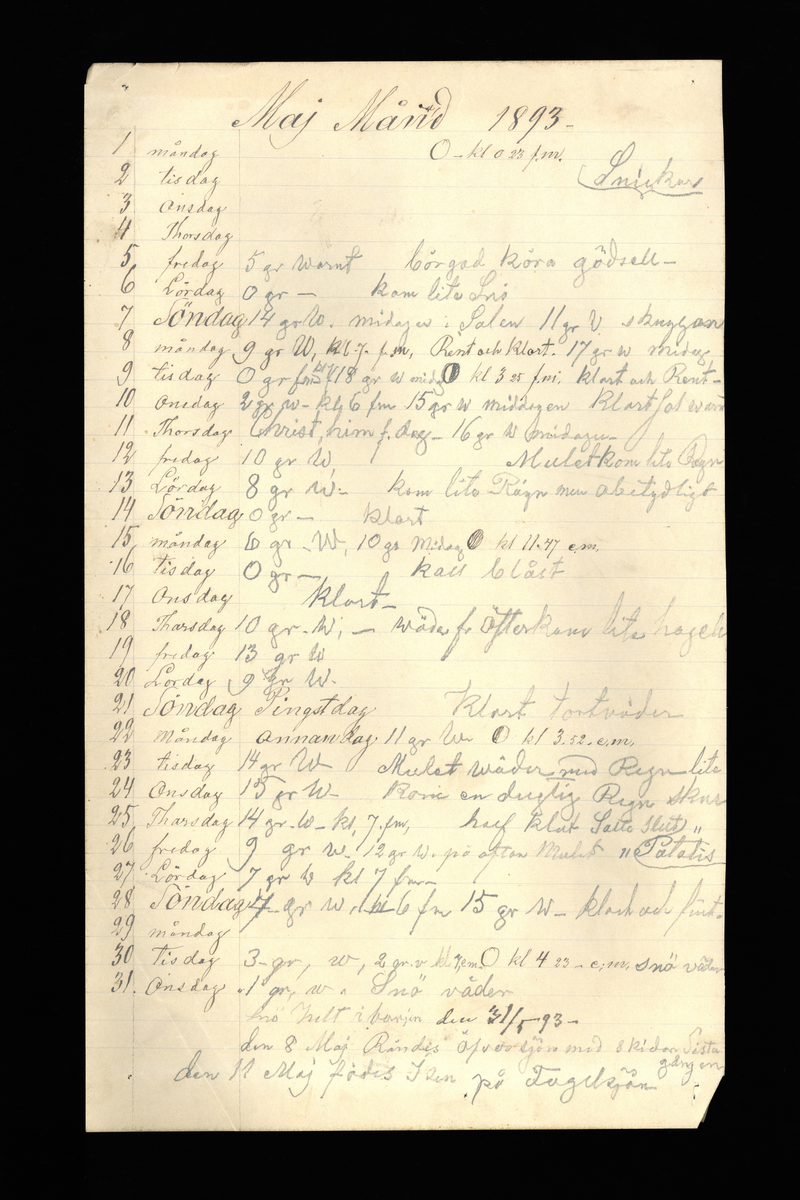 Maj Månd 1893-
1 måndag O - kl 0 23 f.m.
2 tisdag Snickar
3 Onsdag
4 Thorsdag
5 fredag 5 gr Warmt börgad köra gödsell-
6 Lördag 0 gr - kom lite Snö
7 Söndag 14 gr W. midagen i Solen 11 gr V. skuggan
8 måndag 9 gr W, kl 7. f.m, Rent och klart. 17 gr w midag
9 tisdag 0 gr fm 18 gr w midag kl 3 25 f.m. klart och Rent-
10 Onsdag 2 gr w- kl 6 fm 15 gr w middagen klart Sol warmt
11 Thorsdag Christ, him f. dag- 16 gr w midagen-
12 fredag 10 gr W, Mulet kom lite Regn
13 Lördag 8 gr W- kom lite Rägn men obetydligt
14 Söndag 0 gr - klart
15 måndag 6 gr - W, 10 gr Midag kl 11.47 e.m.
16 tisdag 0 gr - kall blåst
17 Onsdag klart-
18 Thorsdag 10 gr - W; - kom lite hageln
19 fredag 13 gr W
20 Lördag 9 gr W-
21 Söndag Pingstdag Klart tortväder
22 måndag annandag 11 gr W kl 3.52. e.m.
23 tisdag 14 gr W Mulet wäder med Regn lite
24 Onsdag 15 gr W- kom en dugtig Regn skur
25 Thorsdag 14 gr - W - kl, 7. fm, half klat Satte "
26 fredag 9 gr w. 12 gr W. på afton Mulet " Potatis
27 Lördag 7 gr w kl 7 fm-
28 Söndag 4 gr w, kl 6 fm 15 gr W- klart och fint.
29 måndag
30 tisdag 3- gr, w, 2 gr. v kl 7, em. O kl 4 23 - e,m, snö väder
31. Onsdag "1 gr, w " Snö väder
snö den 31/5 93-
den 8 Maj Råndis öfver sjön med skidor Sista
gången
den 11 Maj Isen på Fogelsjön